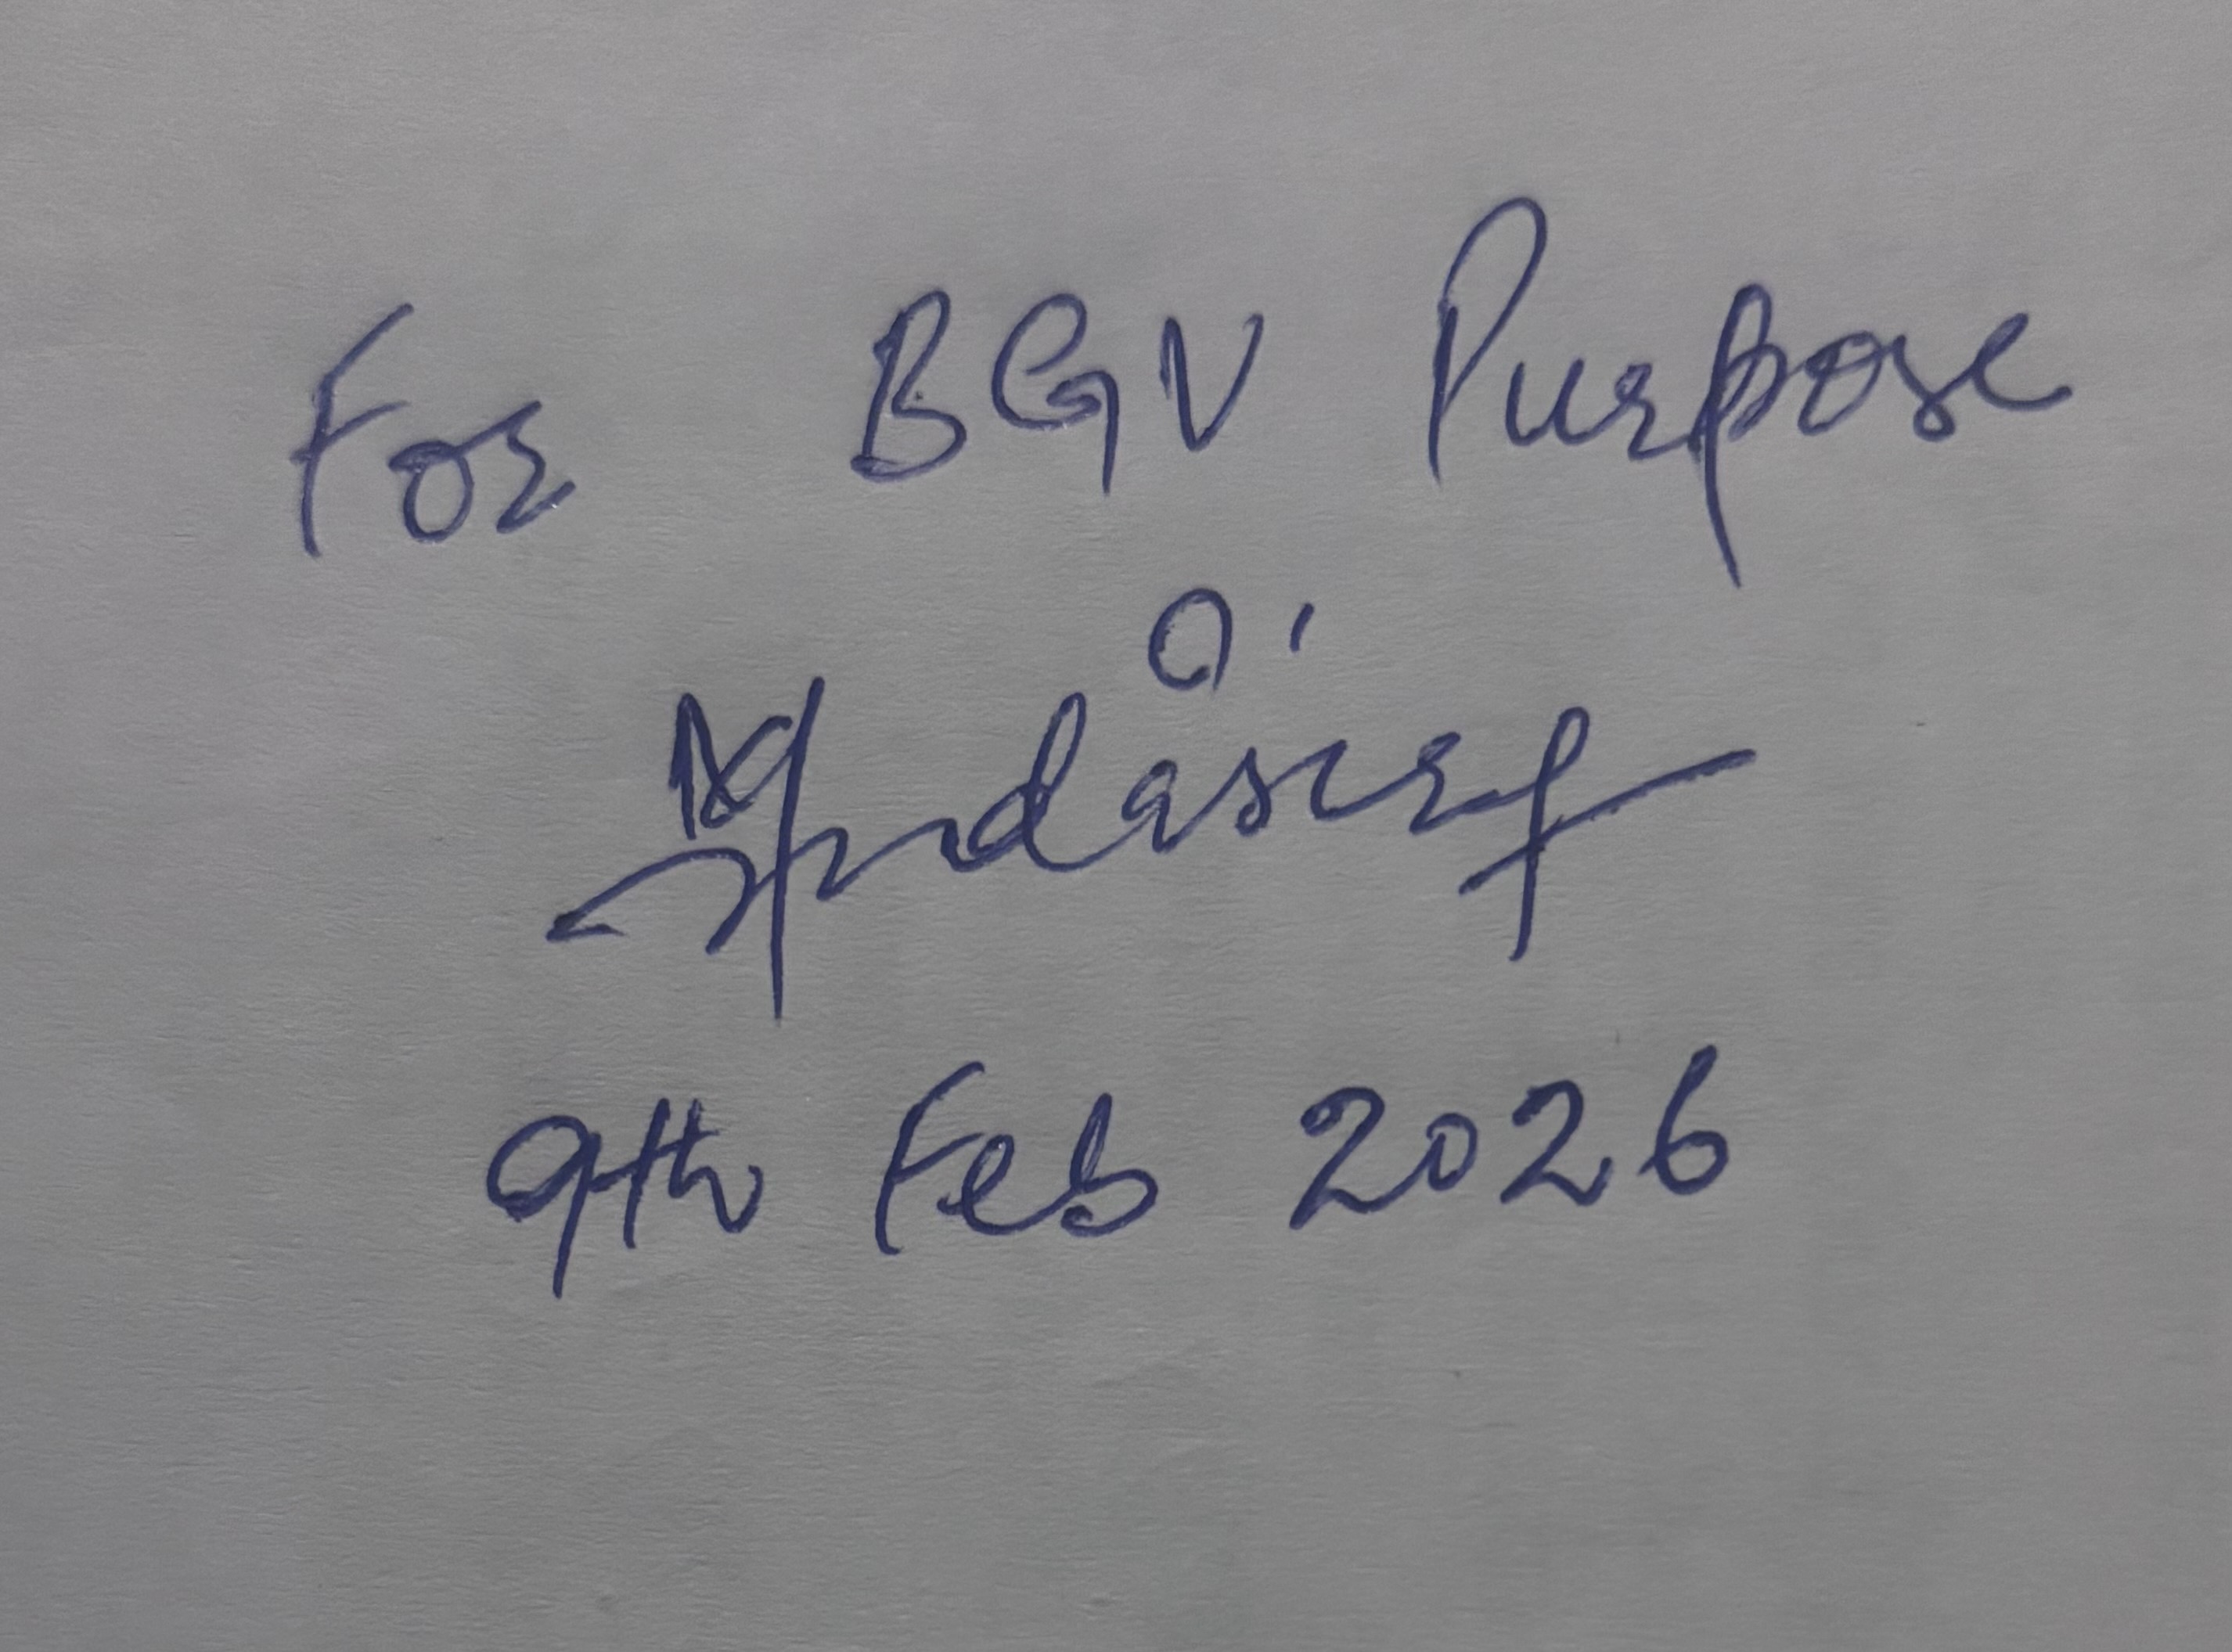 For BGV Purpose
9th Feb 2026